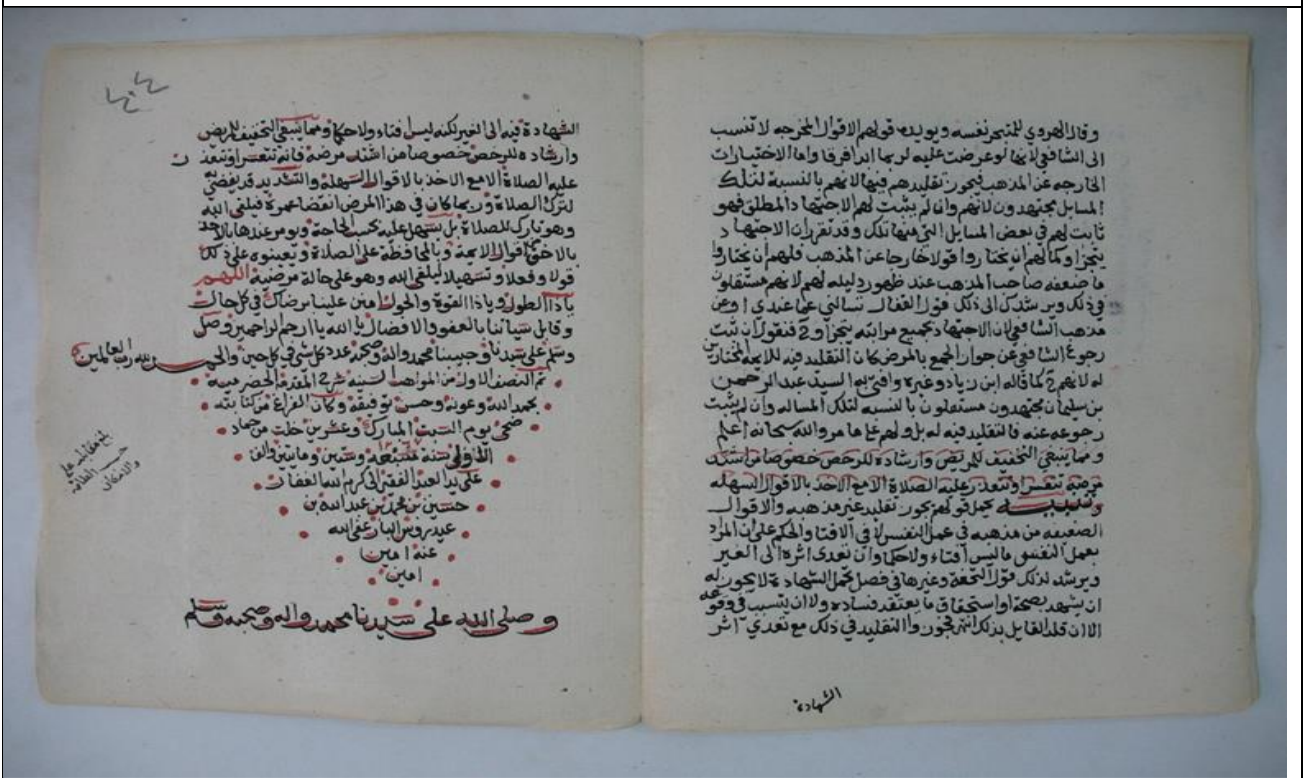 وقال الهروي للمتبحر نفسه ويويده قولهم الاقوال المخرجه لا تنسب
الى الشافعي لانها لو عرضت عليه لربما ابدا فرقا واما الاختيارات
الخارجه عن المذهب فيجوز تقليدهم فيها لانهم بالنسبة لتلك
المسايل مجتهدون لانهم وان لم يثبت لهم الاجتهاد المطلق فهو
ثابت لهم في بعض المسايل التي منها تلك وقد تقرر ان الاجتهاد
يتجزا وكما لهم ان يختاروا قولا خارجا عن المذهب فلهم ان يختاروا
ما ضعفه صاحب المذهب عند ظهور دليله لهم لانهم مستقلون
في ذلك ويرشدك الى ذلك قول القفال تسالني عما عندي او عن
مذهب الشافعي لان الاجتهاد بجميع مراتبه يتجزا و2 فنقول ان ثبت
رجوع الشافعي عن جواز الجمع بالمرض كان التقليد فيه للايمه المختارين
له لانهم 2 كما قاله ابن زياد وغيره وافتى به السيد عبد الرحمن
بن سليمان مجتهدون مستقلون بالنسبه لتلك المساله وان لم يثبت
رجوعه عنه فالتقليد فيه له بل ولهم على ما مر والله سبحانه اعلم
ومما ينبغي التخفيف للمريض وارشاده للرخص خصوصا من اشتد
مرضه تتعسر او تتعذر عليه الصلاة الا مع الاخذ بالاقوال السهله
وتنبيه يحمل قولهم يجوز تقليد غير مذهبه والاقوال
الضعيفه من مذهبه في عمل النفس لا في الافتا والحكم على ان المراد
بعمل النفس ما ليس افتاء ولا حكما وان تعدى اثره الى الغير
ويرشد لذلك قول التحفة وغيرها في فصل تحمل الشهادة لا يجوز له
ان يشهد بصحة او استحقاق ما يعتقد فساده ولا ان يتسبب في وقوعه
الا ان قلد القايل بذلك انتهى فجوزوا التقليد في ذلك مع تعدي اثر
الشهادة
الشهادة فيه الى الغير لكنه ليس افتاء ولا حكما ومما ينبغي التخفيف للمريض
وارشاده للرخص خصوصا من اشتد مرضه فانه تتعسر او تتعذر
عليه الصلاة الا مع الاخذ بالاقوال السهلة والتشديد قد يفضي به
لترك الصلاة وربما كان في هذا المرض انقضا عمره فيلقى الله
وهو تارك للصلاة بل يسهل عليه بحسب الحاجة ويومر عندها بالاخذ
بالاخف من اقوال الايمة وبالمحافظة على الصلاة ويعينوه على ذلك
قولا وفعلا وتسهيلا ليلقى الله وهو على حالة مرضية اللهم
يا ذا الطول ويا ذا القوة والحول امنن علينا برضاك في كل حال
وقابل سياتنا بالعفو والافضال يا الله يا ارحم الراحمين وصل
وسلم على سيدنا وحبيبنا محمد واله وصحبه عدد كل شي في كل حين والحمد لله رب العالمين
تم النصف الاول من المواهب السنية شرح المقدمة الحضرمية
بحمد الله وعونه وحسن توفيقه وكان الفراغ من كتابته
ضحى يوم السبت المبارك وعشرين خلت من جماد
الاولى سنة سبعة وستين ومايتين والف
على يد العبد الفقير الى كرم الله الغفار
حسين بن محمد بن عبد الله بن
عيدروس البار عفى الله
عنه امين
امين
وصلى الله على سيدنا محمد واله وصحبه وسلم
بلغ مقابلة على
حسب الطاقة
والامكان